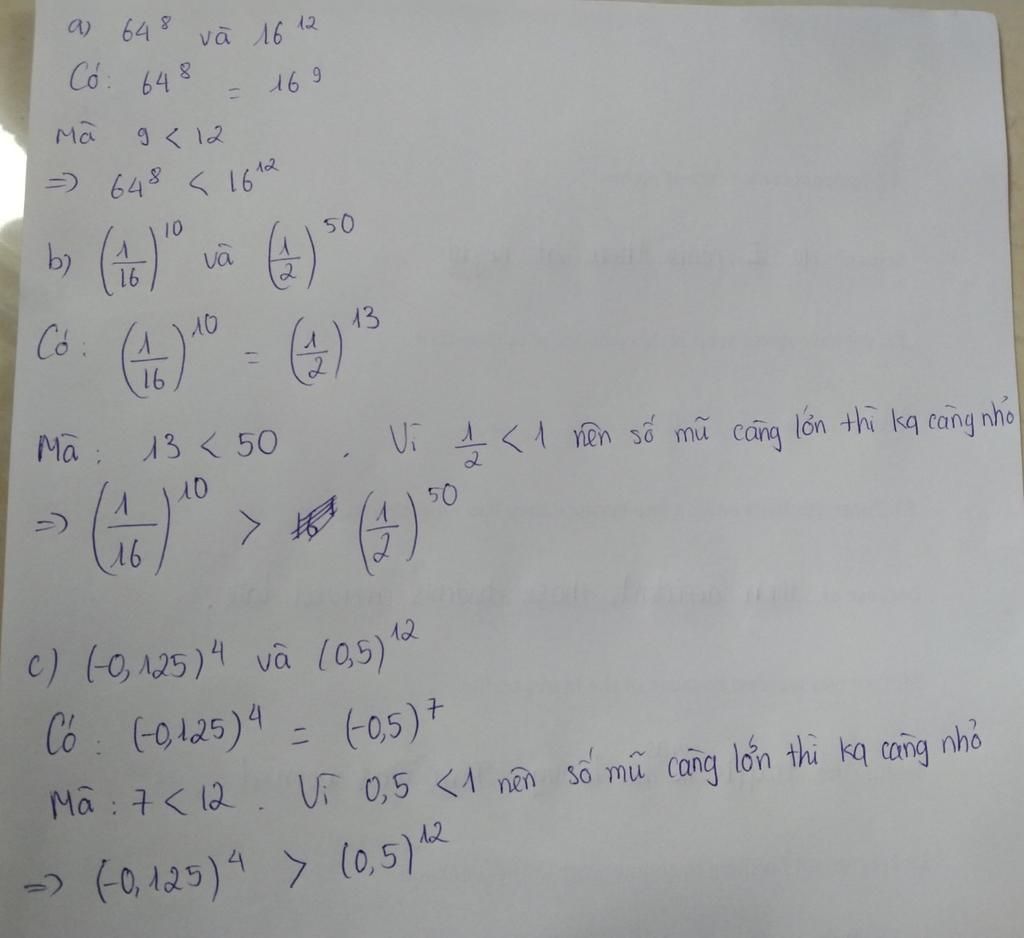 a) 64⁸ và 16¹²
Có: 64⁸ = 16⁹
Mà 9 < 12
=> 64⁸ < 16¹²
b) (1/16)¹⁰ và (1/2)⁵⁰
Có: (1/16)¹⁰ = (1/2)¹³
Mà: 13 < 50 . Vì 1/2 < 1 nên số mũ càng lớn thì kq càng nhỏ
=> (1/16)¹⁰ > (1/2)⁵⁰
c) (-0,125)⁴ và (0,5)¹²
Có: (-0,125)⁴ = (-0,5)⁷
Mà: 7 < 12 . Vì 0,5 < 1 nên số mũ càng lớn thì kq càng nhỏ
=> (-0,125)⁴ > (0,5)¹²